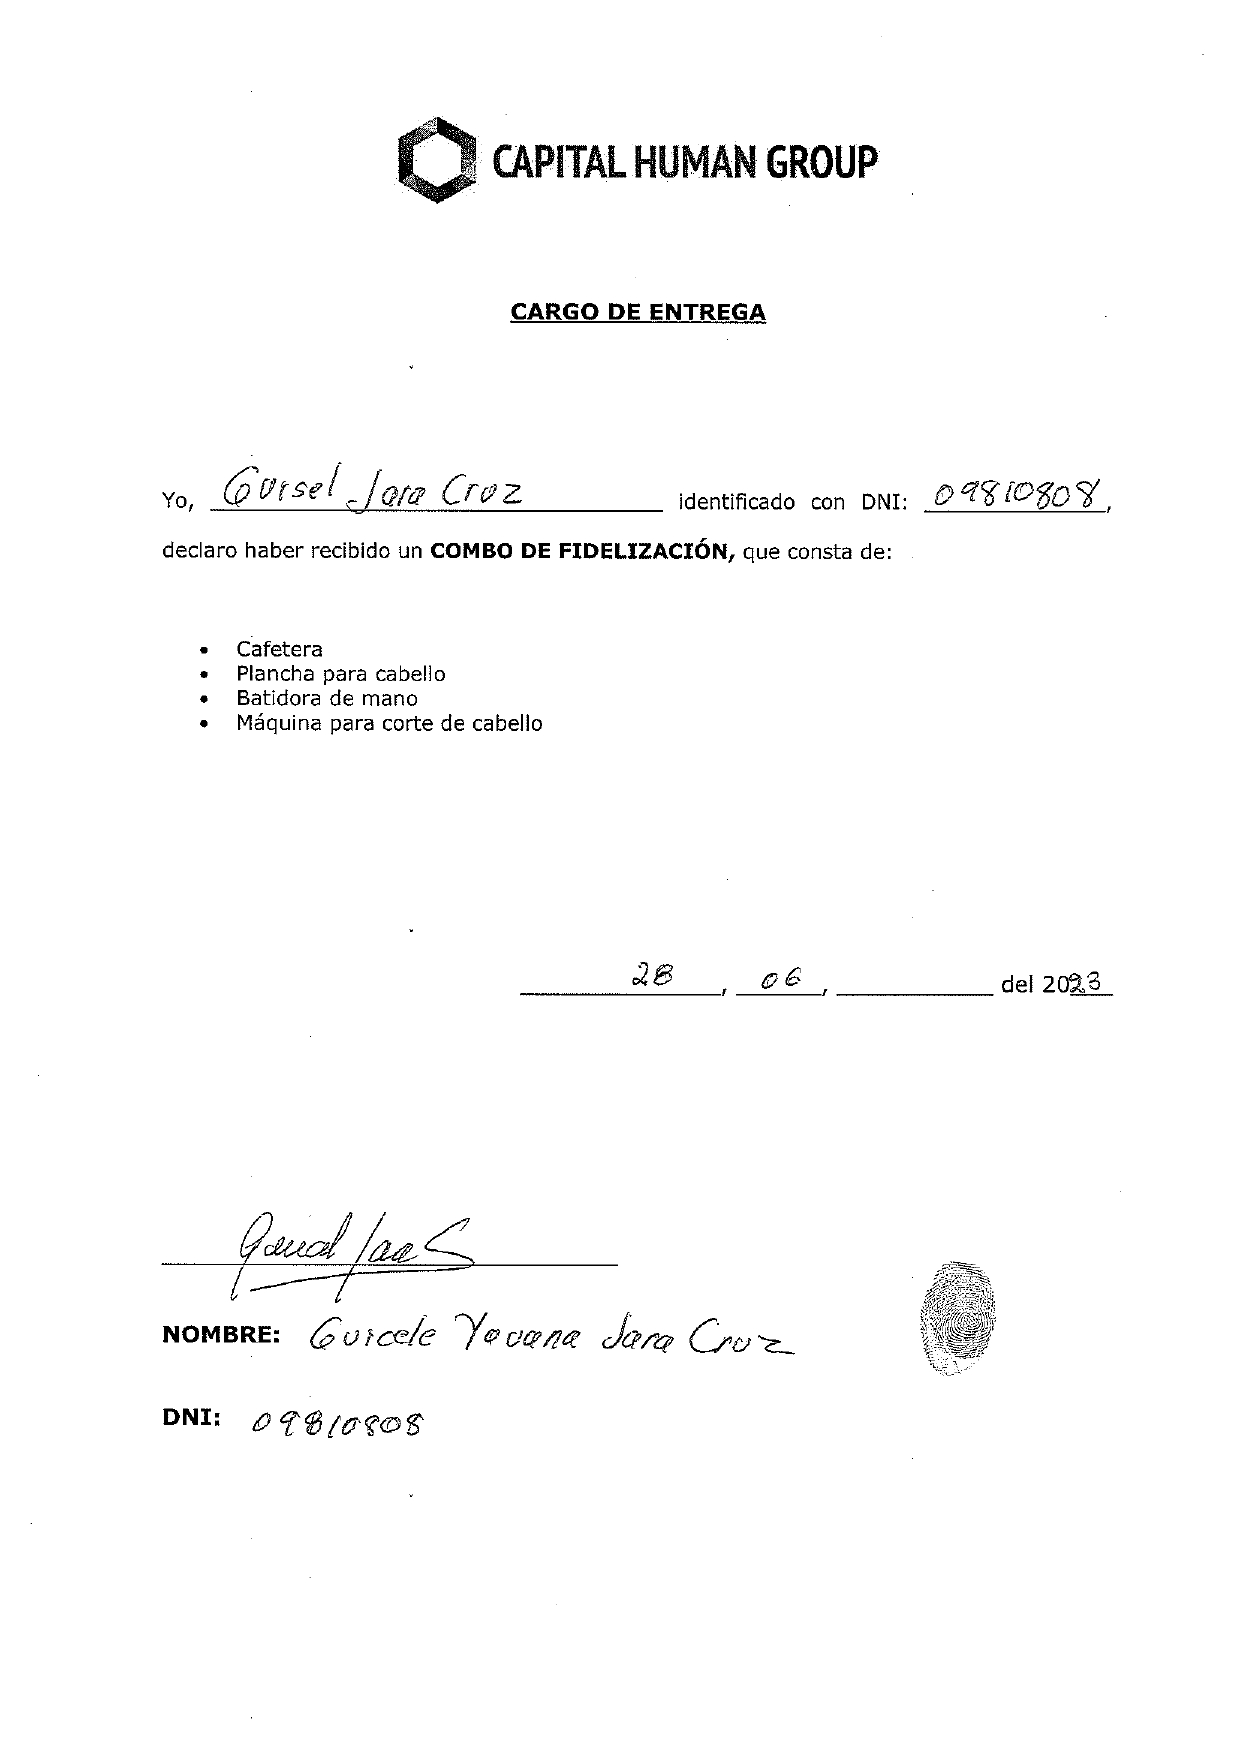 CAPITAL HUMAN GROUP
CARGO DE ENTREGA
Yo, Gursel Jara Cruz identificado con DNI: 09810808,
declaro haber recibido un COMBO DE FIDELIZACIÓN, que consta de:
• Cafetera
• Plancha para cabello
• Batidora de mano
• Máquina para corte de cabello
28, 06, del 2023
NOMBRE: Gurcele Yovana Jara Cruz
DNI: 09810808